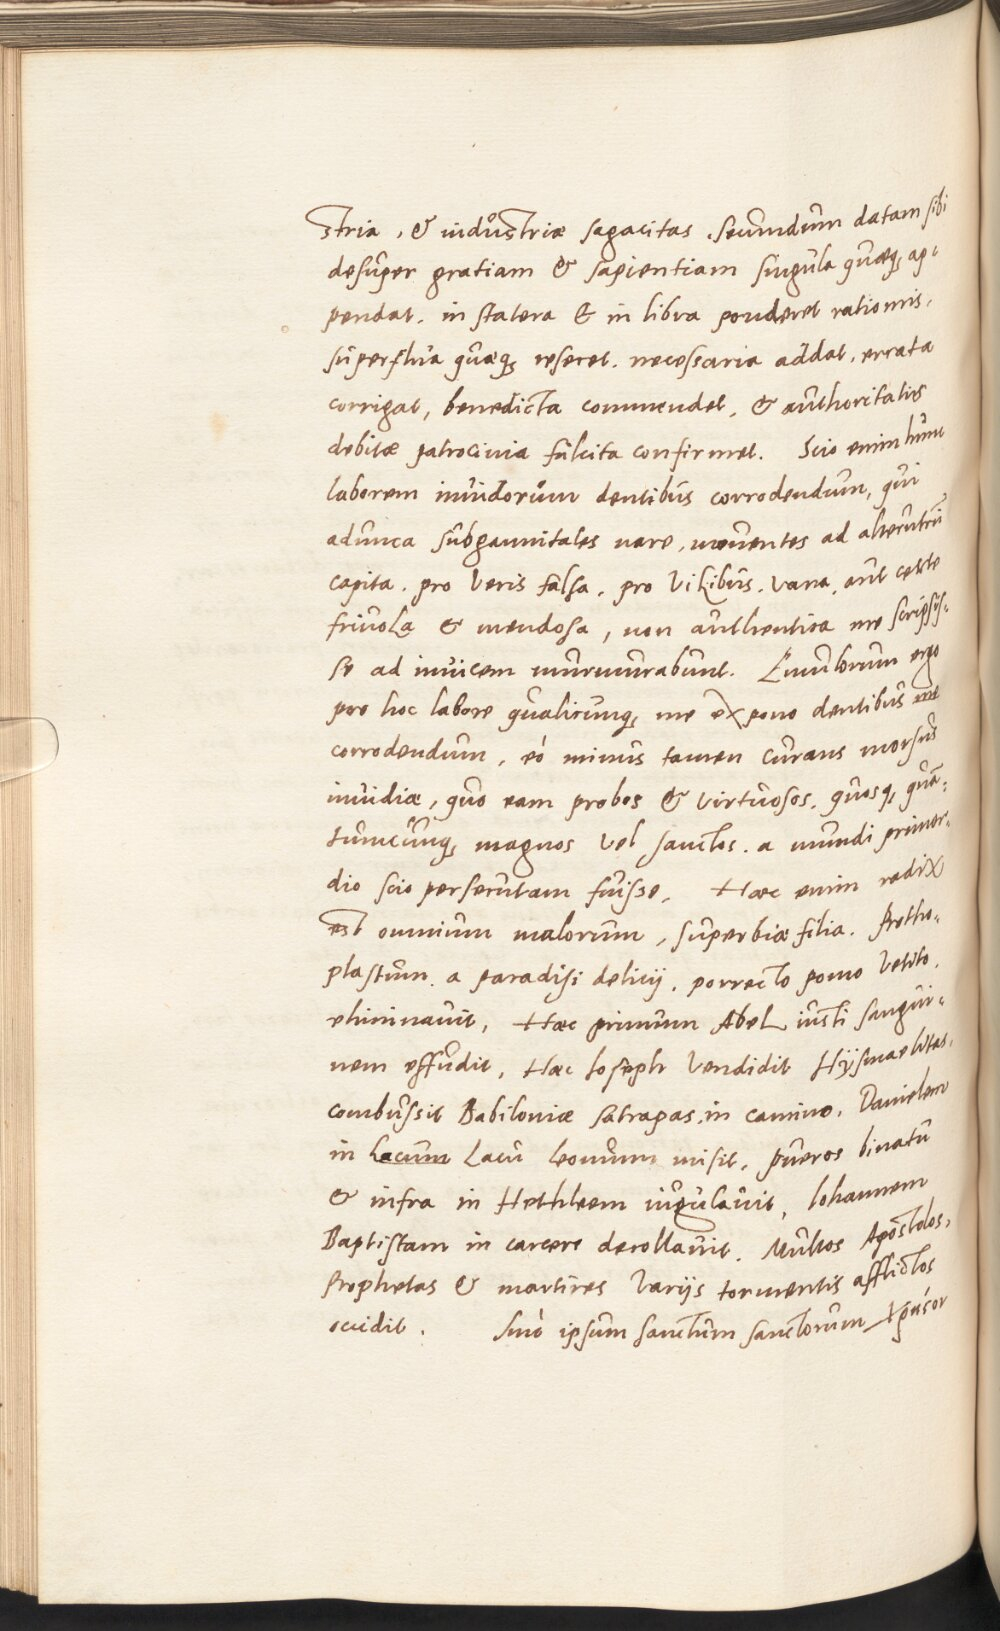 stria, & industriæ sagacitas. secundum datam sibi
desuper gratiam & sapientiam singula quæq, ap-
pendat. in statera & in libra ponderet rationis.
superflua quæq, reseret. necessaria addat, errata
corrigat, benedicta commendet, & authoritatis
debitæ patrocinia fulcita confirmet. Scio enim hunc
laborem inuidorum dentibus corrodendum, qui
adunca subgannitales nare, mouentes ad alterutrũ
capita. pro veris falsa, pro vilibus. vana, aut certe
friuola & mendosa, non authentica me scripsis-
se ad inuicem murmurabunt. Emulorum ergo
pro hoc labore qualicunq, me expono dentibus me
corrodendum, eò minus tamen curans morsus
inuidiæ, quo eam probos & virtuosos. quosq, quã-
tumcunq, magnos vel sanctos. a mundi primor-
dio scio perserutam fuisse. Hæc enim radix
est omnium malorum, superbiæ filia. Protho-
plastum. a paradisi delicij, porrecto pomo vetito,
eliminauit, Hæc primum Abel iusti sangui-
nem effudit, Hæc Ioseph vendidit Hijsmaelitas.
combussit Babiloniæ satrapas, in camino, Danielem
in lacum Lacũ leonum misit, pueros binatũ
& infra in Hethleem iugulauit, Iohannem
Baptistam in carcere decollauit. Multos Apostolos,
Prophetas & martires varijs tormentis afflictos
occidit. Sinò ipsum sanctum sanctorum